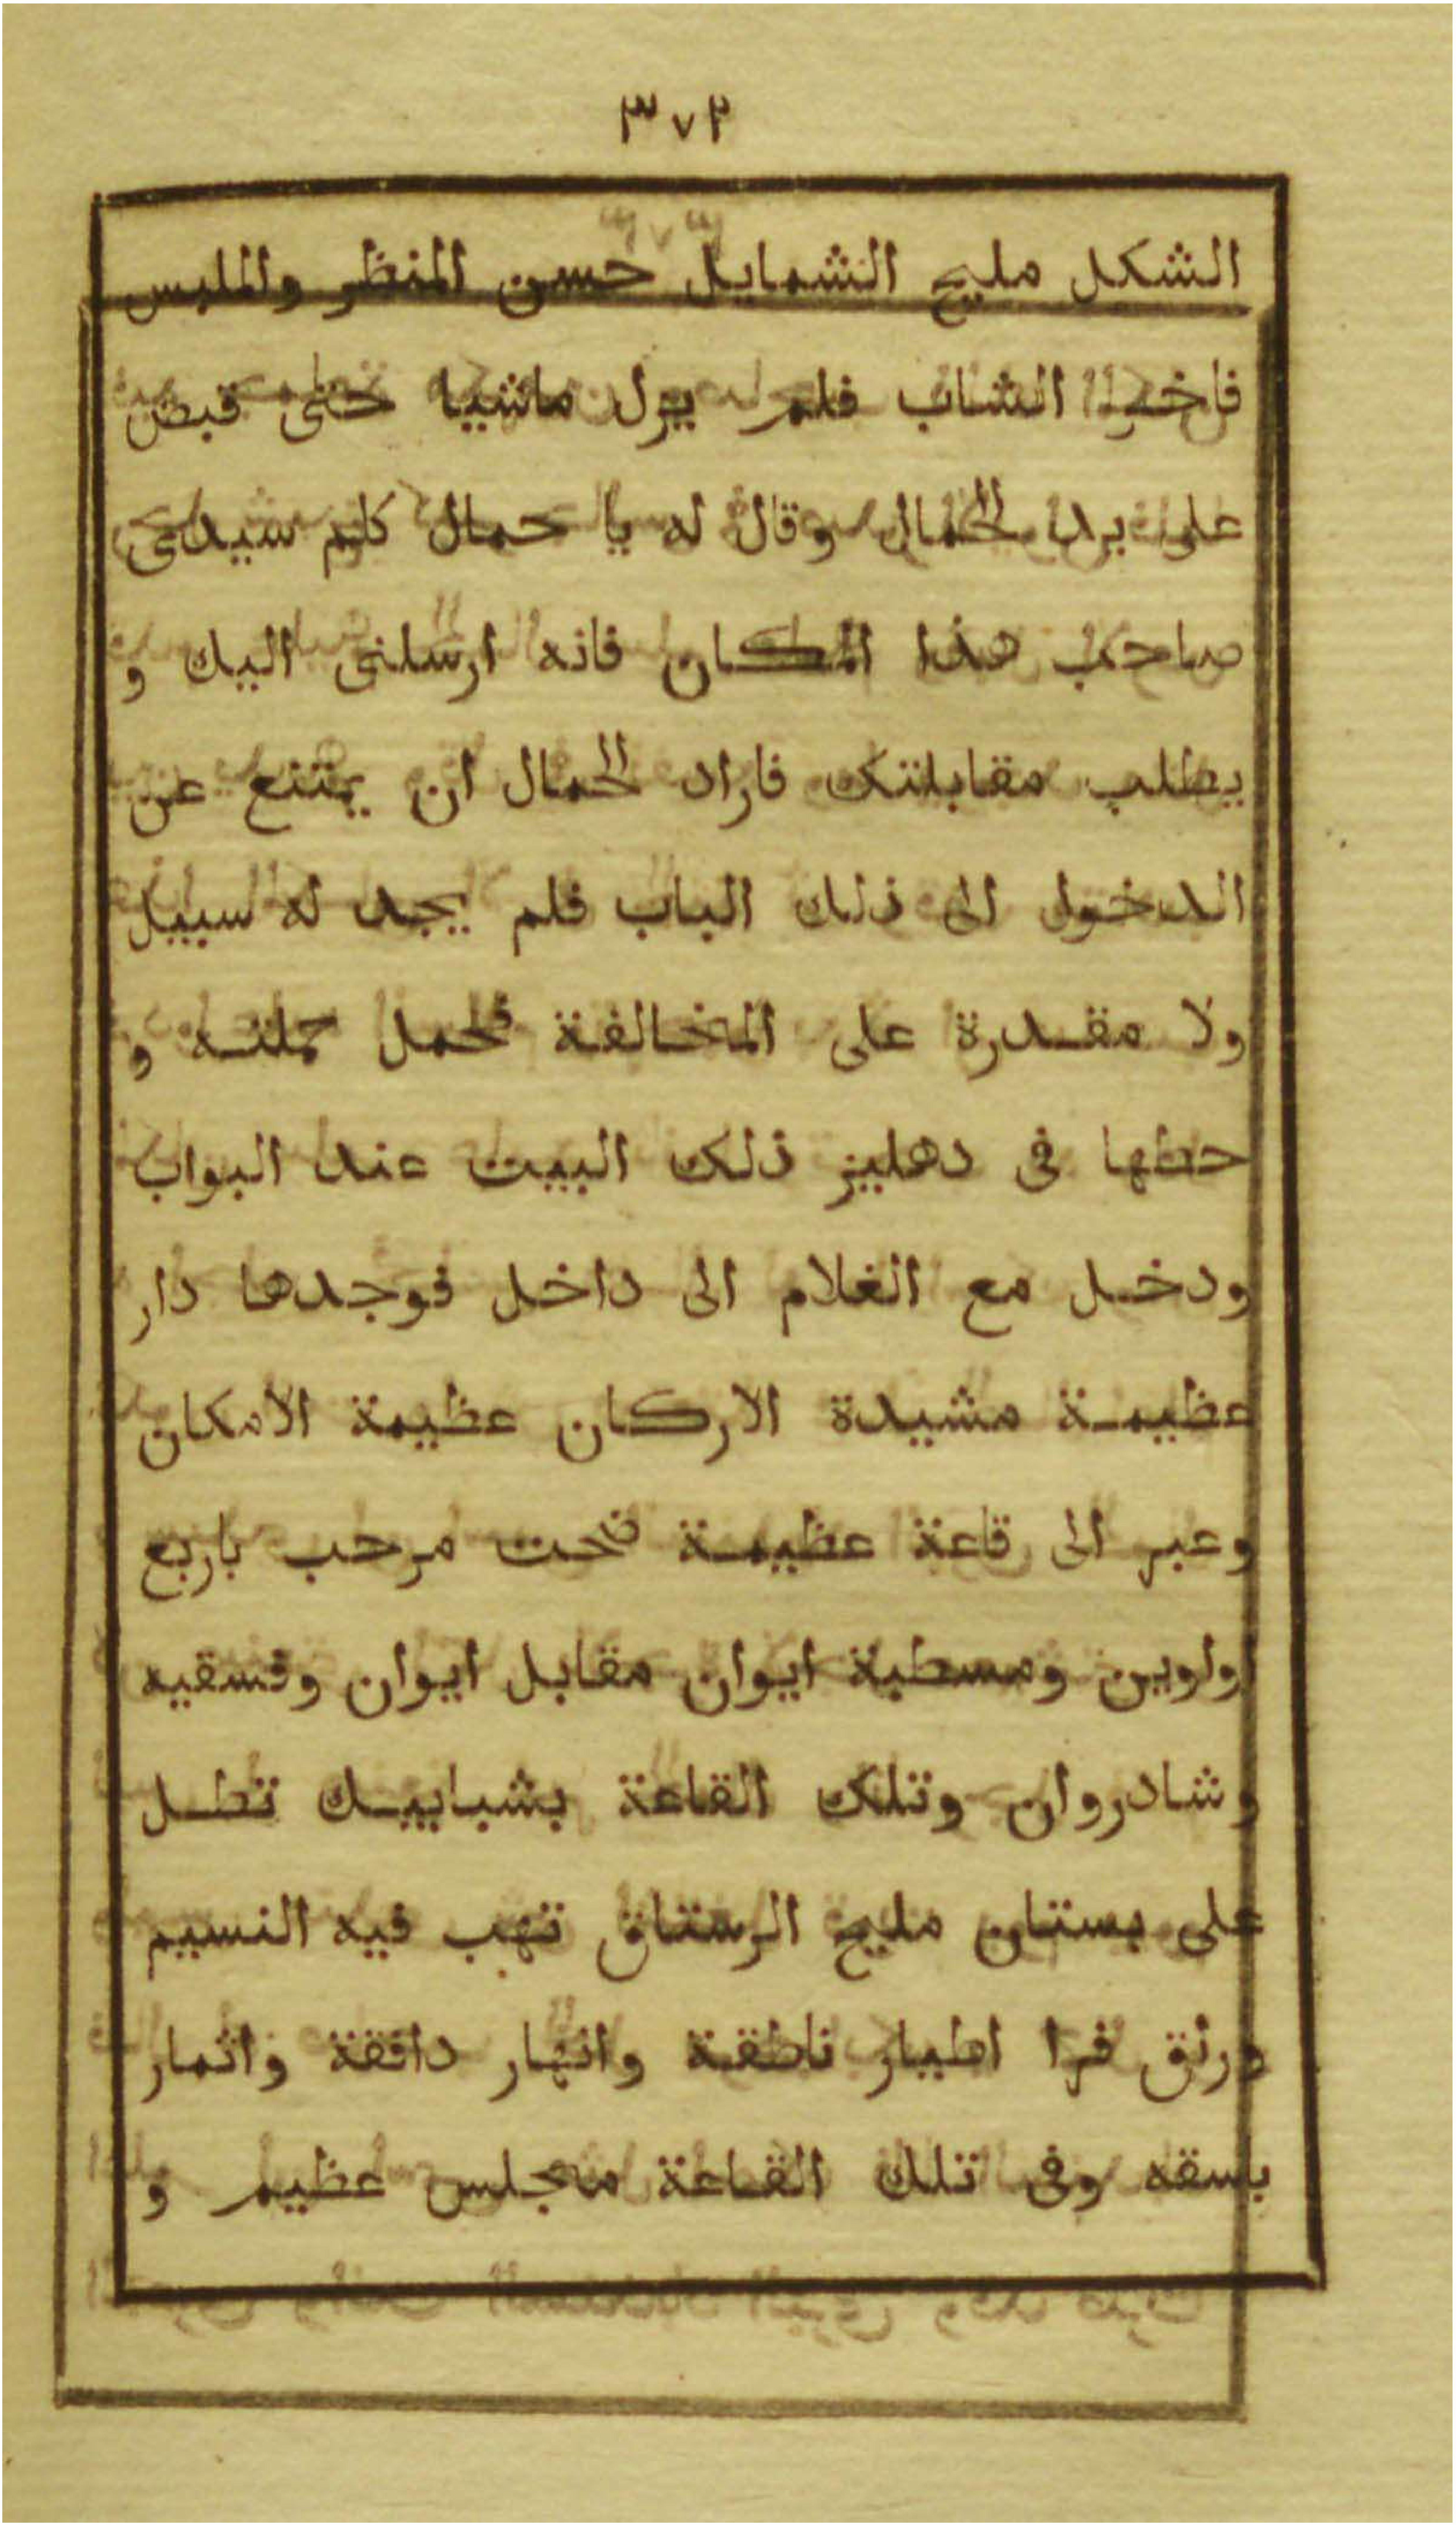 ٣٧٢
الشكل مليح الشمايل حسن المنظر والملبس
فاخر الشاب فلم يزل ماشيا حتى قبض
على يد الحمال وقال له يا حمال كلم سيدى
صاحب هذا المكان فانه ارسلنى اليك و
يطلب مقابلتك فاراد الحمال ان يمتنع عن
الدخول الى ذلك الباب فلم يجد له سبيل
ولا مقدرة على المخالفة فحمل حملته و
حطها فى دهليز ذلك البيت عند البواب
ودخل مع الغلام الى داخل فوجدها دار
عظيمة مشيدة الاركان عظيمة الامكان
وعبر الى قاعة عظيمة فتحت مرحب باربع
اواوين ومسطبة ايوان مقابل ايوان وفسقيه
وشادروان وتلك القاعة بشبابيك تطل
على بستان مليح الرستاق تهب فيه النسيم
ورتق فرا اطيار ناطقة وانهار دافقة واثمار
بسقه وفى تلك القاعة مجلس عظيم و